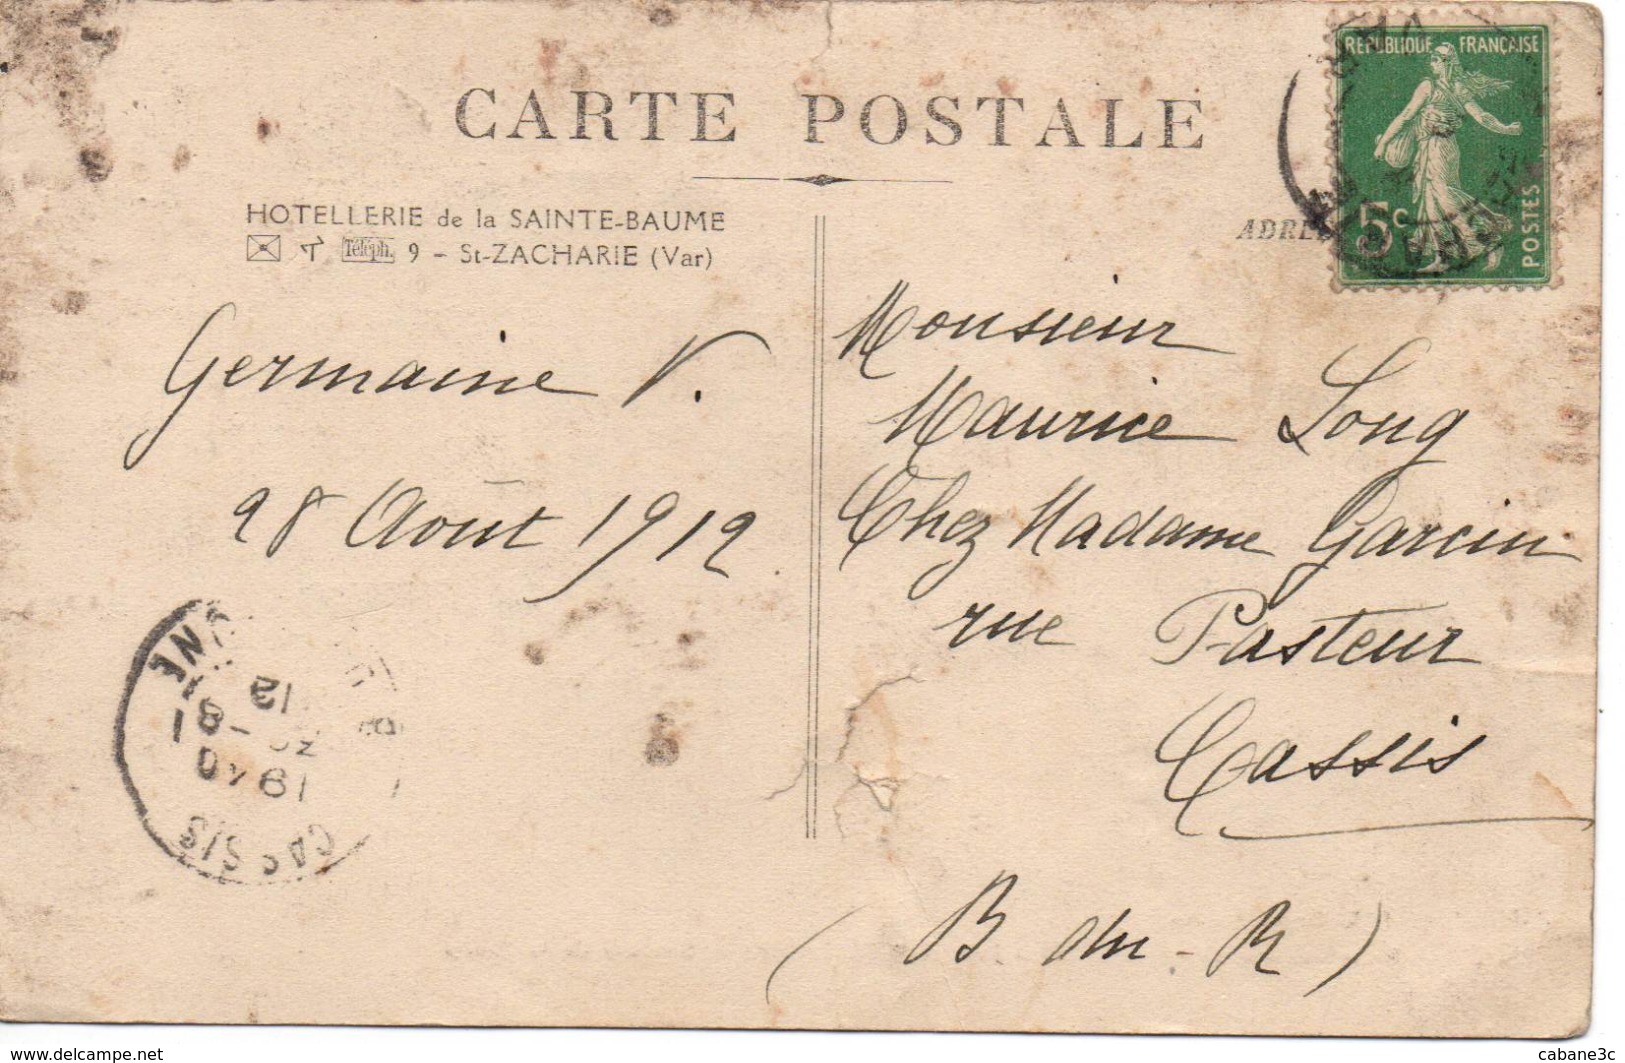 CARTE POSTALE
HOTELLERIE de la SAINTE-BAUME
Téléph. 9 - St-ZACHARIE (Var)
RÉPUBLIQUE FRANÇAISE
5c
POSTES
Germaine V.
28 Août 1912
Monsieur
Maurice Long
Chez Madame Garcin
rue Pasteur
Cassis
(B. du-R)
CASSIS
www.delcampe.net
cabane3c